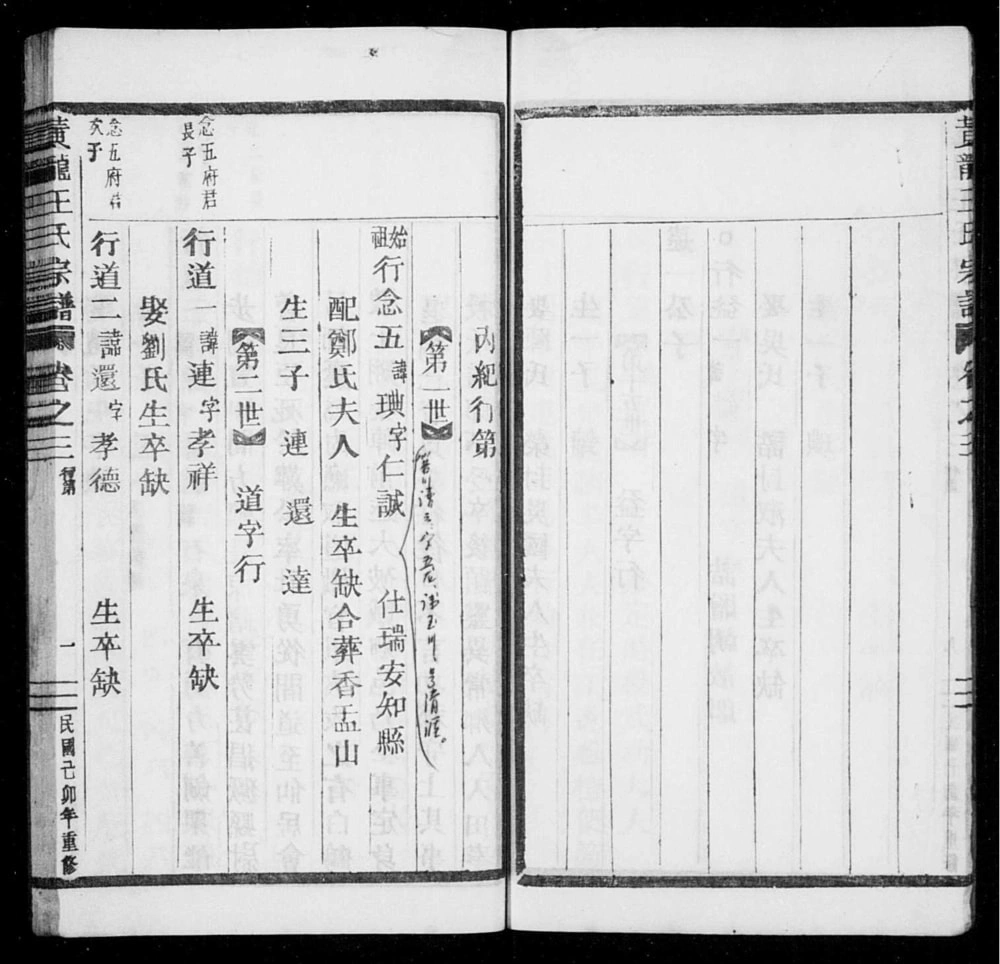 黃龍王氏宗譜
卷之三
二
內紀行第
第一世
始祖行念五諱璵字仁誠 仕瑞安知縣
配鄭氏夫人 生卒缺合葬香盂山
生三子連 還 達
第二世 道字行
念五府君長子
行道 諱連字孝祥 生卒缺
娶劉氏生卒缺
念五府君次子
行道二諱還字孝德 生卒缺
黃龍王氏宗譜
卷之三 行第
一
民國己卯年重修